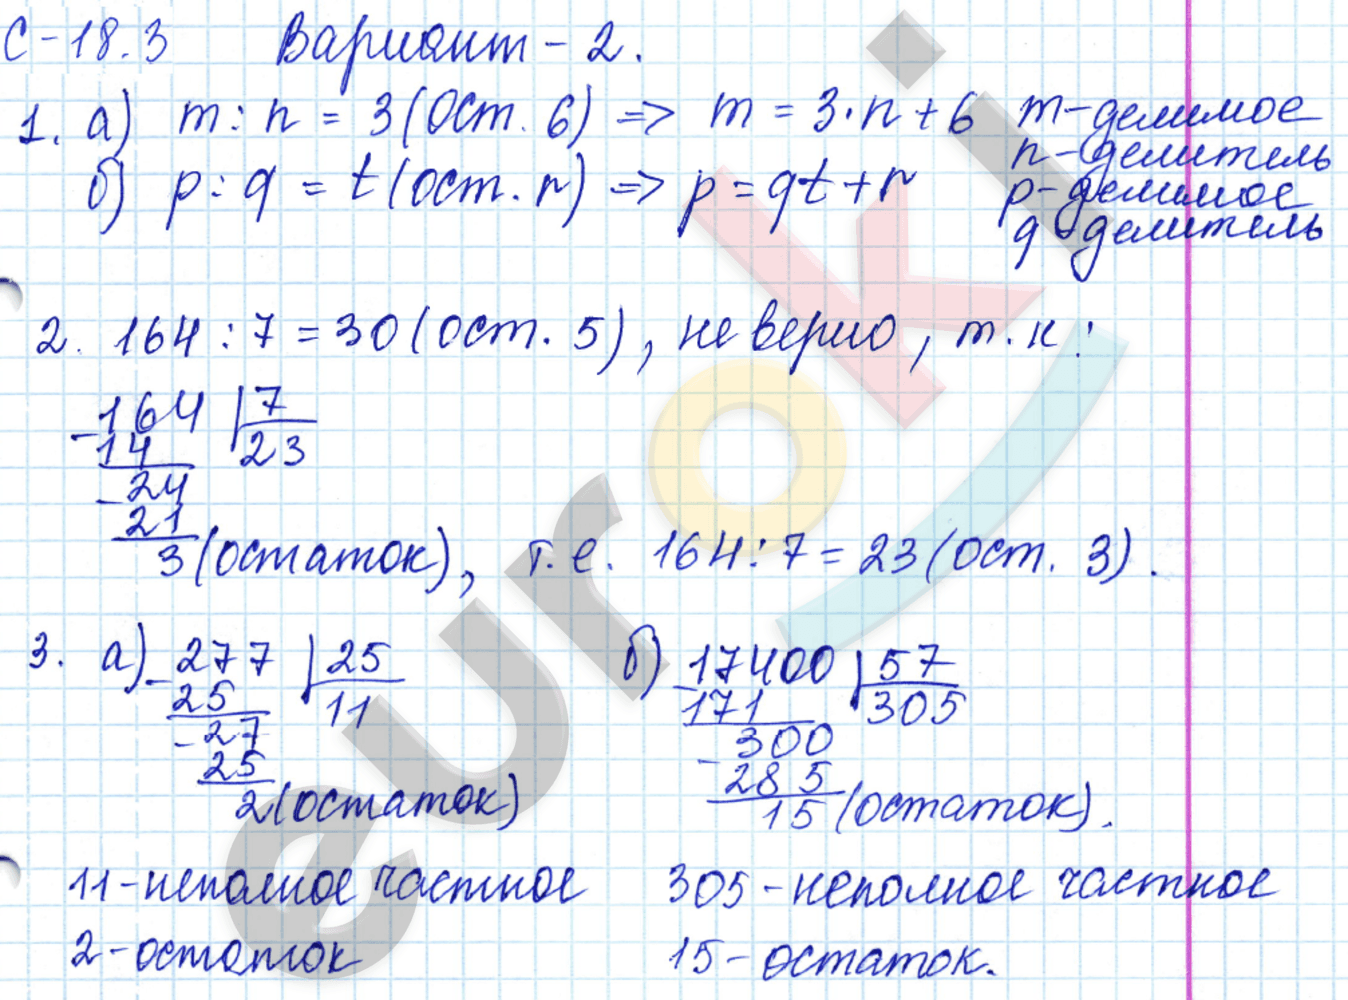 С-18.3 Вариант-2.
1. а) m : n = 3 (ост. 6) => m = 3·n + 6 m-делимое
n-делитель
б) p : q = t (ост. r) => p = qt + r p-делимое
q-делитель
2. 164 : 7 = 30 (ост. 5), не верно, т.к:
-164 | 7
14 23
-24
21
3 (остаток), т.е. 164 : 7 = 23 (ост. 3).
3. а) -277 | 25
25 11
-27
25
2 (остаток)
б) -17400 | 57
171 305
-300
285
15 (остаток).
11-неполное частное 305-неполное частное
2-остаток 15-остаток.
euroki